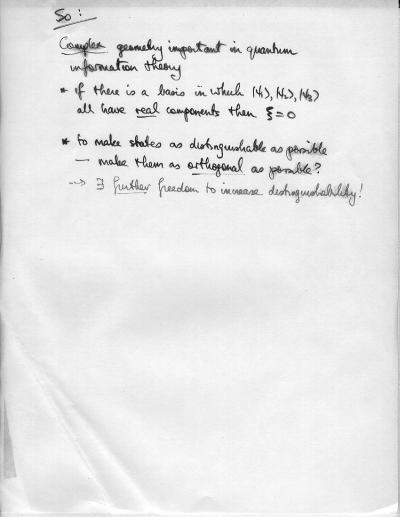 So:
Complex geometry important in quantum
information theory
* if there is a basis in which |ψ₁⟩, |ψ₂⟩, |ψ₃⟩
all have real components then ξ=0
* to make states as distinguishable as possible
— make them as orthogonal as possible?
--> ∃ further freedom to increase distinguishability!